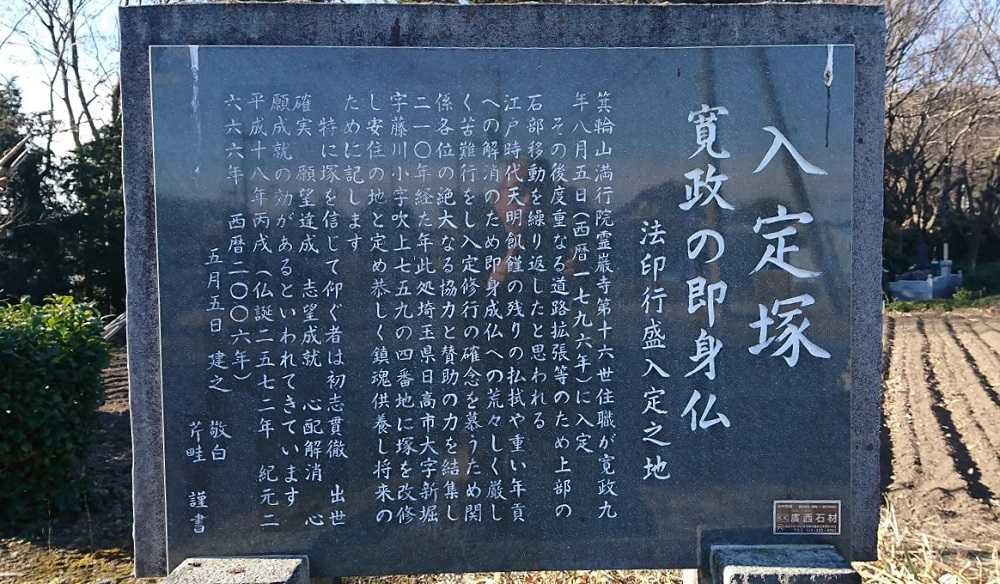 入定塚
寛政の即身仏
法印行盛入定之地
箕輪山満行院霊巌寺第十六世住職が寛政九
年八月五日(西暦一七九六年)に入定
その後度重なる道路拡張等のため上部の
石部移動を繰り返したと思われる
江戸時代天明飢饉の残りの払拭や重い年貢
への解消のため即身成仏への荒々しく厳し
く苦難行をし入定修行の確念を慕うため関
係各位の絶大なる協力と賛助の力を結集し
二一〇年経た年此処埼玉県日高市大字新堀
字藤川小字吹上七五九の四番地に塚を改修
し安住の地と定め恭しく鎮魂供養し将来の
ために記します
特に塚を信じて仰ぐ者は初志貫徹 出世
確実 願望達成 志望成就 心配解消 心
願成就の効があるといわれてきています
平成十八年丙戌(仏誕二五七二年 紀元二
六六六年 西暦二〇〇六年)
五月五日 建之
敬白
芹畦 謹書
廣西石材